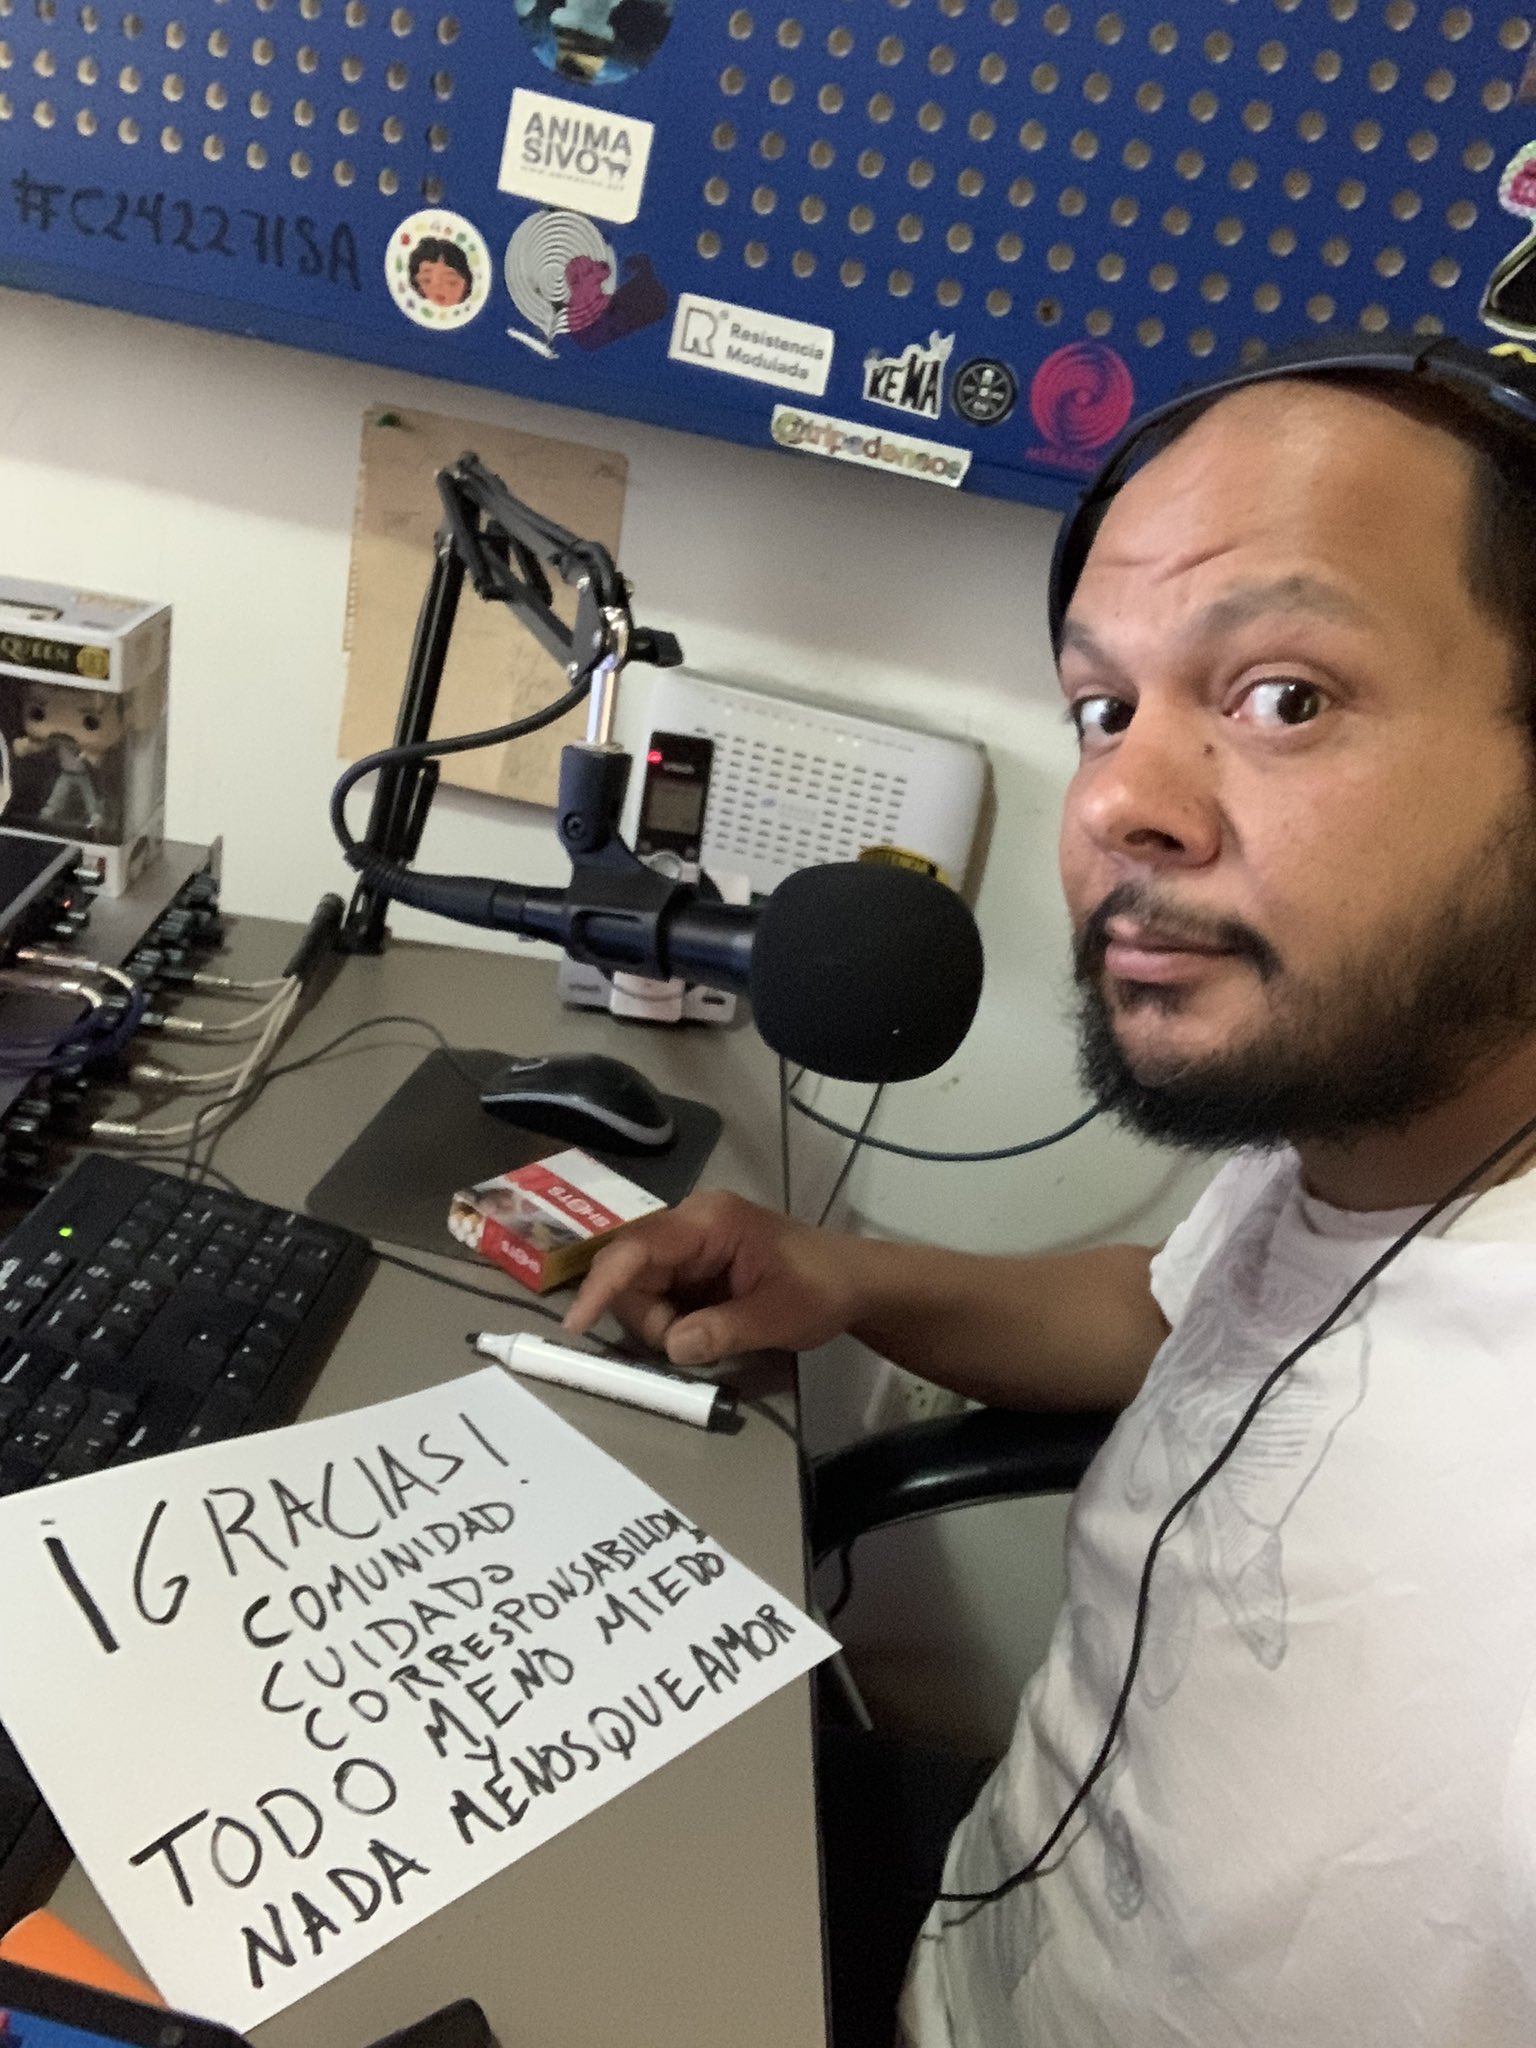 ANIMA
SIVO
#C242271SA
R® Resistencia
Modulada
KEMA
@tripodensos
QUEEN
SHOTS
SHOTS
¡GRACIAS!
COMUNIDAD
CUIDADO
CORRESPONSABILIDAD
TODO MENO MIEDO
Y
NADA MENOS QUE AMOR